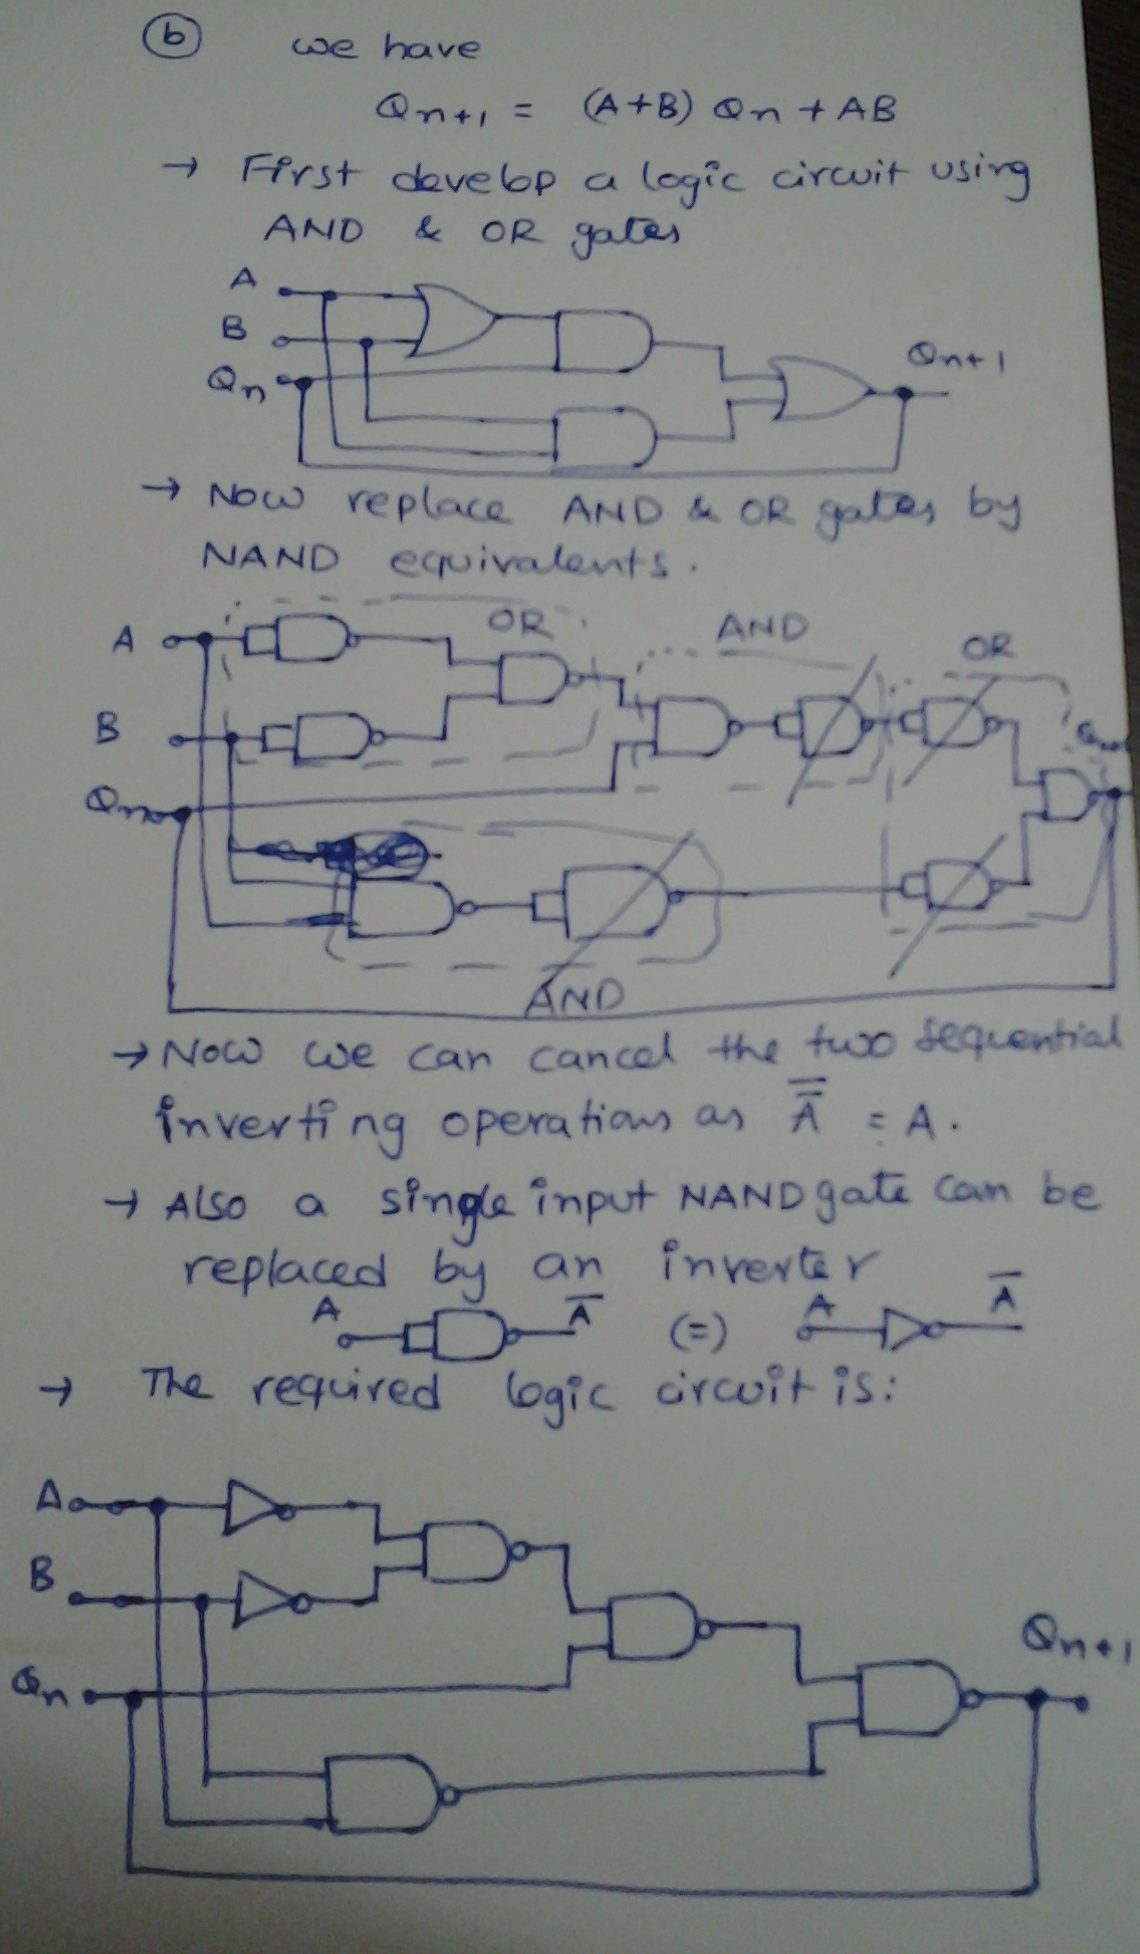 (b) we have
Qn+1 = (A+B) Qn + AB
→ First develop a logic circuit using
AND & OR gates
A
B
Qn
Qn+1
→ Now replace AND & OR gates by
NAND equivalents.
OR
AND
OR
A
B
Qn
AND
→ Now we can cancel the two sequential
inverting operations as A̿ = A.
→ Also a single input NAND gate can be
replaced by an inverter
A A̅ (=) A A̅
→ The required logic circuit is:
A
B
Qn
Qn+1